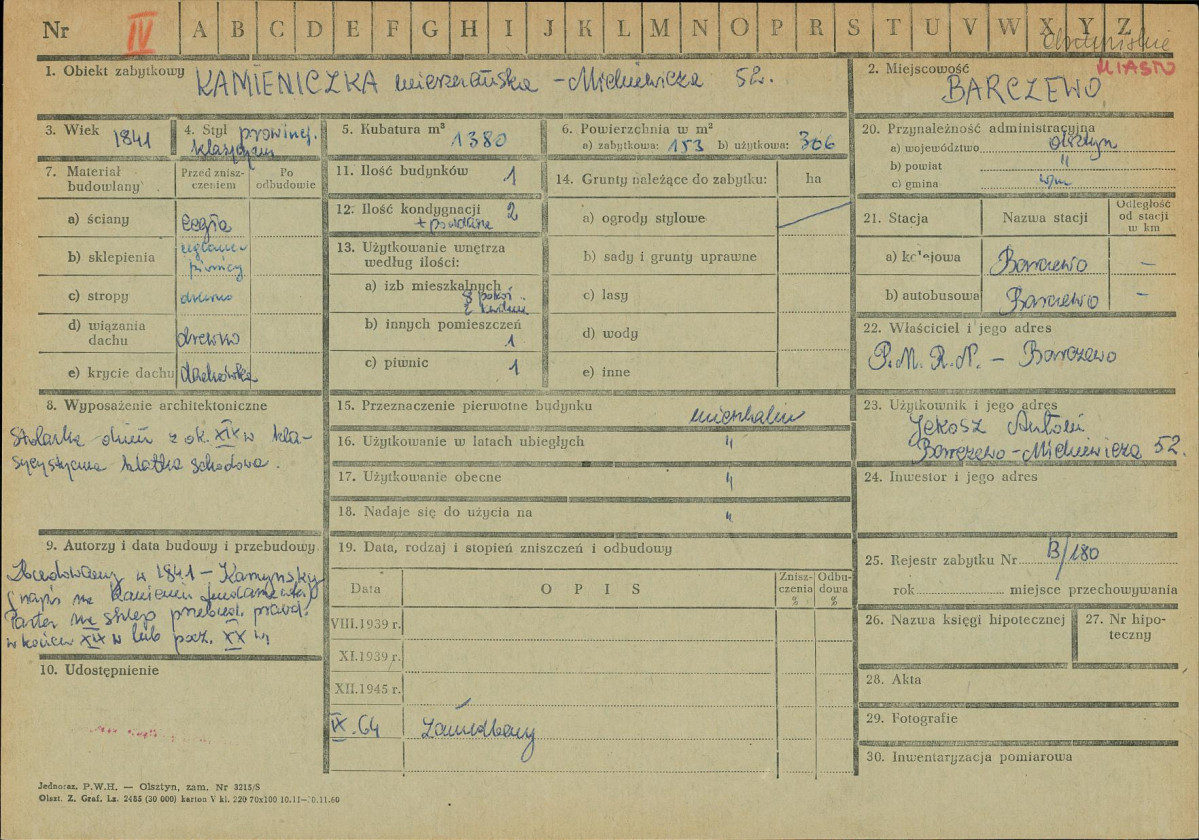 Nr IV A B C D E F G H I J K L M N O P R S T U V W X Y Z
olsztyńskie
MIASTO
1. Obiekt zabytkowy KAMIENICZKA mieszczańska - Mickiewicza 52.
2. Miejscowość
BARCZEWO
3. Wiek 1841
4. Styl prowincj.
klasycyzm
5. Kubatura m³ 1380
6. Powierzchnia w m²
a) zabytkowa: 153 b) użytkowa: 306
7. Materiał
budowlany
Przed znisz-
czeniem
Po
odbudowie
a) ściany cegła
b) sklepienia
piwnicy
c) stropy drewno
d) wiązania
dachu drewno
e) krycie dachu dachówka
8. Wyposażenie architektoniczne
Stolarka drzwi z ok. XIX w kla-
sycystyczna klatka schodowa.
9. Autorzy i data budowy i przebudowy
Zbudowany w 1841 - Kamynsky
(napis na kamieniu fundamentowym)
Parter na sklep przebud. prawd.
w końcu XIX w lub pocz. XX w,
10. Udostępnienie
11. Ilość budynków 1
12. Ilość kondygnacji 2
+ poddasze
13. Użytkowanie wnętrza
według ilości:
a) izb mieszkalnych
8 pokoi
2 kuchnie
b) innych pomieszczeń
1
c) piwnic 1
14. Grunty należące do zabytku: ha
a) ogrody stylowe
b) sady i grunty uprawne
c) lasy
d) wody
e) inne
15. Przeznaczenie pierwotne budynku mieszkalny
16. Użytkowanie w latach ubiegłych "
17. Użytkowanie obecne "
18. Nadaje się do użycia na "
19. Data, rodzaj i stopień zniszczeń i odbudowy
Data O P I S Znisz-
czenia
% Odbu-
dowa
%
VIII.1939 r.
XI.1939 r.
XII.1945 r.
IX.64 Zaniedbany
20. Przynależność administracyjna
a) województwo olsztyn
b) powiat "
c) gmina w/m
21. Stacja Nazwa stacji Odległość
od stacji
w km
a) kolejowa Barczewo -
b) autobusowa Barczewo -
22. Właściciel i jego adres
P.M.R.N. - Barczewo
23. Użytkownik i jego adres
Antoni
Barczewo - Mickiewicza 52.
24. Inwestor i jego adres
25. Rejestr zabytku Nr B/180
rok miejsce przechowywania
26. Nazwa księgi hipotecznej
27. Nr hipo-
teczny
28. Akta
29. Fotografie
30. Inwentaryzacja pomiarowa
Jednoraz. P.W.H. — Olsztyn, zam. Nr 3215/S
Olszt. Z. Graf. Lz. 2485 (30 000) karton V kl. 220 70x100 10.11—30.11.60